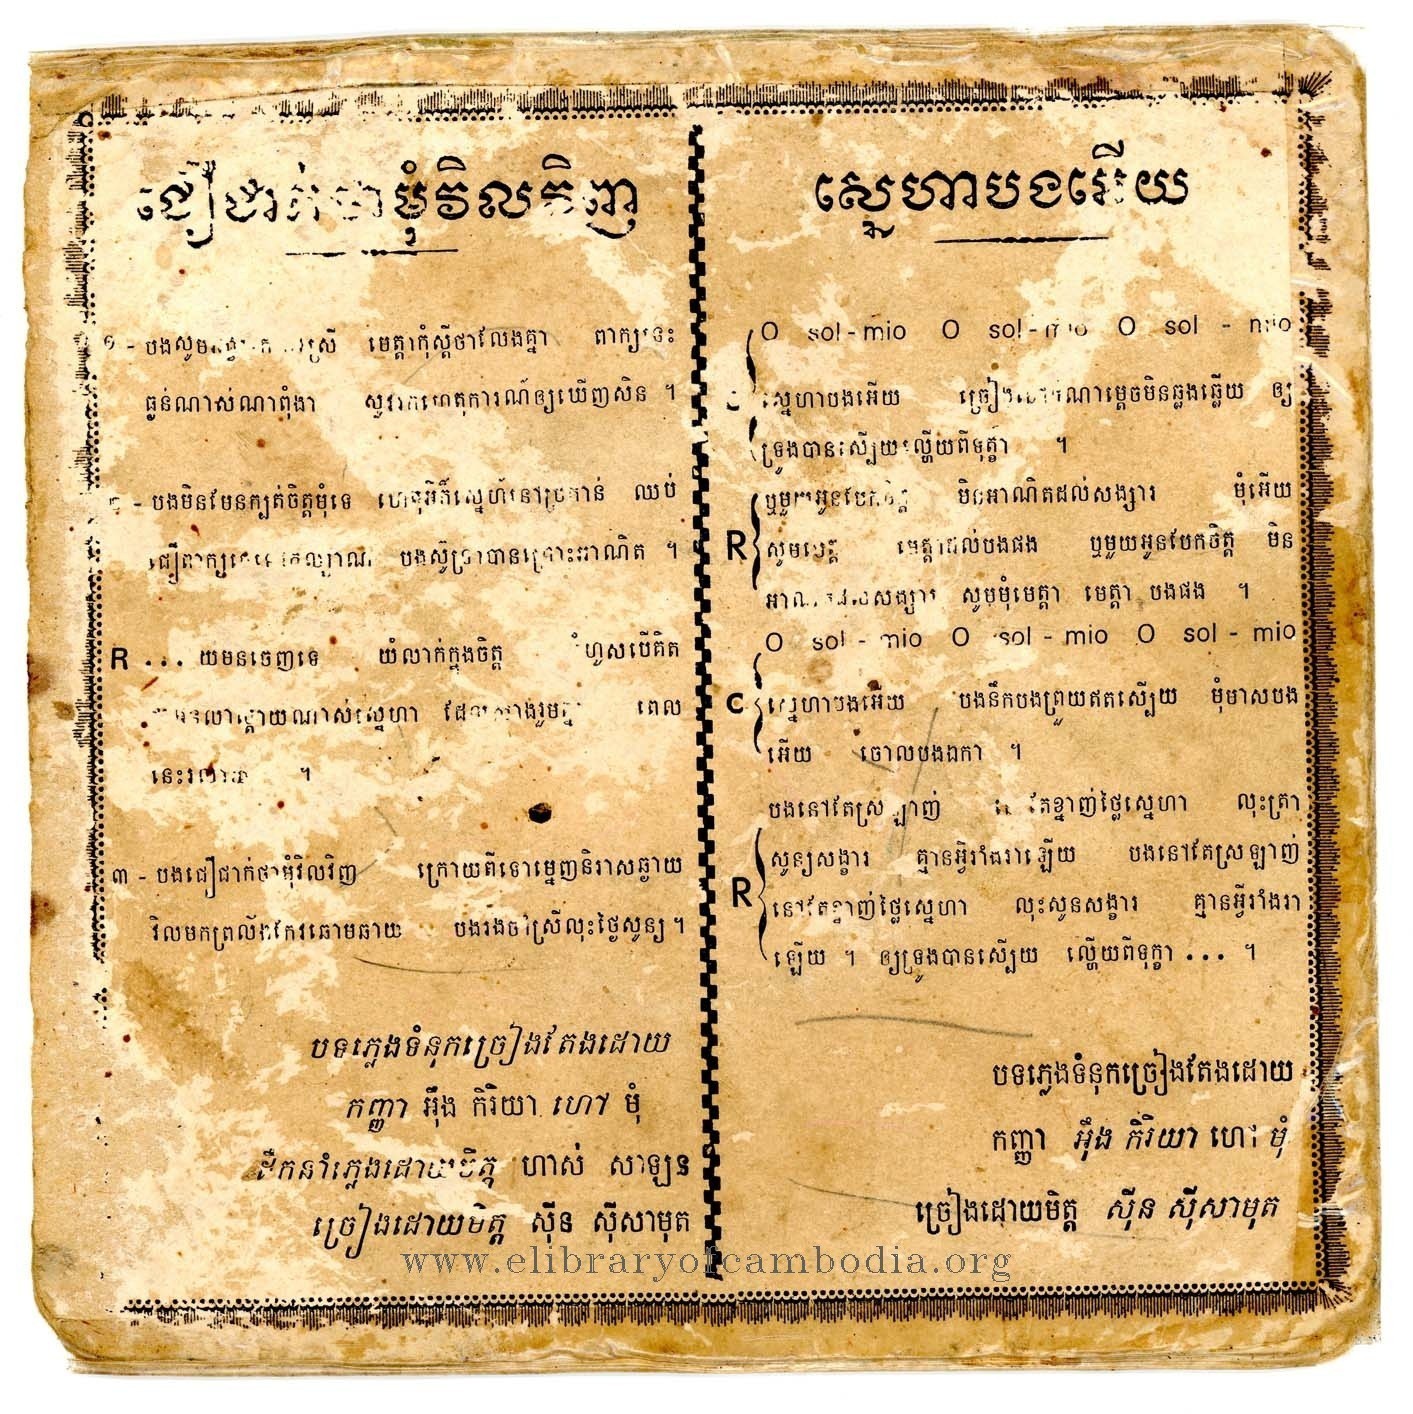 ជឿជាក់ថាមុំវិលវិញ
១ - បងសូម ស្រី មេត្តាកុំស្ដីថាលែងគ្នា ពាក្យនេះ
ធ្ងន់ណាស់ណាពុំងា ហេតុការណ៍ឲ្យឃើញសិន ។
- បងមិនមែនក្បត់ចិត្តមុំទេ ហេតុអីក៏ស្នេហ៍នៅប្រកាន់ ឈប់
ជឿពាក្យគេ កល្យាណ បងស៊ូទ្រាំបានព្រោះអាណិត ។
R ... យមនចេញទេ យំលាក់ក្នុងចិត្ត ហួសបើគិត
ណាស់ស្នេហា ដែល រួមគ្នា ពេល
នេះ ។
៣ - បងជឿជាក់ថាមុំវិលវិញ ក្រោយពីទោម្នេញនិរាសឆ្ងាយ
វិលមកព្រល័ងកែវឆោមឆាយ បងរងចាំស្រីលុះថ្ងៃសូន្យ ។
បទភ្លេងទំនុកច្រៀងតែងដោយ
កញ្ញា អ៊ឹង កិរិយា ហៅ មុំ
ដឹកនាំភ្លេងដោយមិត្ត ហាស់ សាឡន
ច្រៀងដោយមិត្ត ស៊ីន ស៊ីសាមុត
ស្នេហាបងអើយ
O sol - mio O sol - mio O sol - mio
C ស្នេហាបងអើយ ច្រៀង ណាម្ដេចមិនឆ្លងឆ្លើយ ឲ្យ
ទ្រូងបានស្បើយល្ហើយពីទុក្ខា ។
ឬមួយអូនបែកចិត្ត មិនអាណិតដល់សង្សារ មុំអើយ
R សូមមេត្តា មេត្តាដល់បងផង ឬមួយអូនបែកចិត្ត មិន
អាណិតដល់សង្សារ សូមមុំមេត្តា មេត្តា បងផង ។
O sol - mio O sol - mio O sol - mio
C ស្នេហាបងអើយ បងនឹកបងព្រួយឥតស្បើយ មុំមាសបង
អើយ ចោលបងឯកា ។
បងនៅតែស្រឡាញ់ នៅតែខ្នាញ់ថ្លៃស្នេហា លុះត្រា
R សូន្យសង្ខារ គ្មានអ្វីរាំងរាឡើយ បងនៅតែស្រឡាញ់
នៅតែខ្នាញ់ថ្លៃស្នេហា លុះសូនសង្ខារ គ្មានអ្វីរាំងរា
ឡើយ ។ ឲ្យទ្រូងបានស្បើយ ល្ហើយពីទុក្ខា ... ។
បទភ្លេងទំនុកច្រៀងតែងដោយ
កញ្ញា អ៊ឹង កិរិយា ហៅ មុំ
ច្រៀងដោយមិត្ត ស៊ីន ស៊ីសាមុត
www.elibraryofcambodia.org